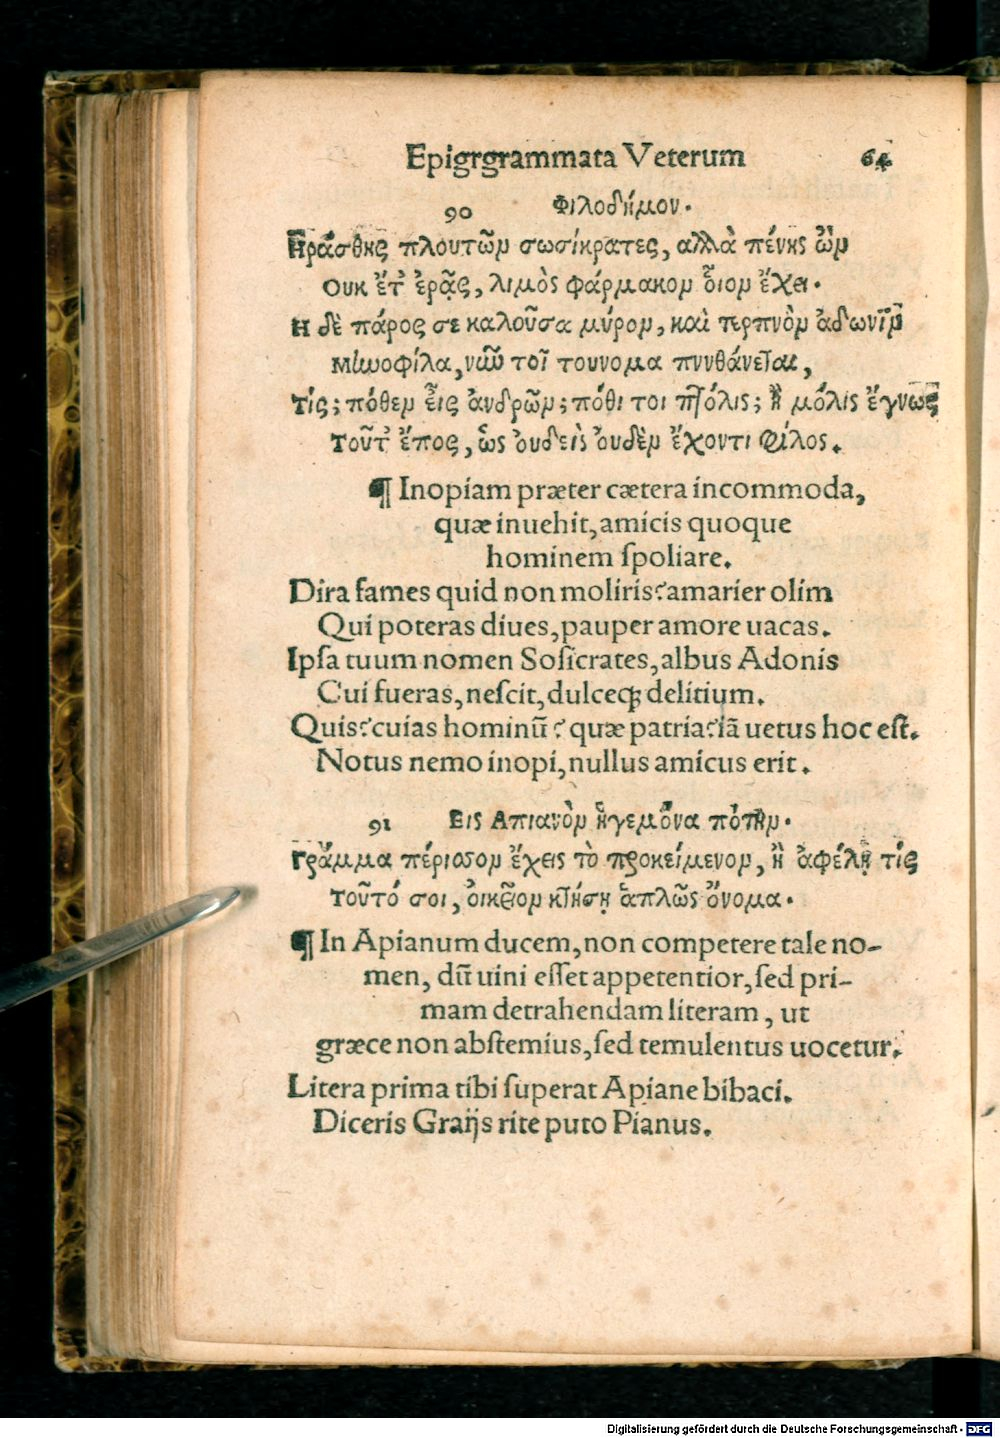 Epigrgrammata Veterum 64
90 Φιλοδήμου.
Ηράσθης πλουτῶν σωσίκρατες, αλλὰ πένης ὢν
Ουκ ἔτ' ἐρᾷς, λιμὸς φάρμακον ὅιον ἔχει.
Η δὲ πάρος σε καλοῦσα μύρον, καὶ τερπνὸν ἀδωνῖν
Μηνοφίλα, νῦν τοῖ τουνομα πυνθάνεται,
τίς; πόθεν εἶς ἀνδρῶν; πόθι τοι πτόλις; ἦ μόλις ἔγνως
τοῦτ' ἔπος, ὡς ὀυδεὶς ὀυδὲν ἔχοντι φίλος.
¶ Inopiam præter cætera incommoda,
quæ inuehit, amicis quoque
hominem ſpoliare.
Dira fames quid non moliris? amarier olim
Qui poteras diues, pauper amore uacas.
Ipſa tuum nomen Soſicrates, albus Adonis
Cui fueras, neſcit, dulceq; delitium.
Quis? cuias hominũ? quæ patria? iã uetus hoc eſt.
Notus nemo inopi, nullus amicus erit.
91 Εις Απιανὸν ἡγεμόνα πότην.
Γράμμα πέρισσον ἔχεις τὸ προκείμενον, ἢν ἀφέλῃ τίς
τοῦτό σοι, ὀικεῖον κτήσῃ ἁπλῶς ὄνομα.
¶ In Apianum ducem, non competere tale no-
men, dũ uini eſſet appetentior, ſed pri-
mam detrahendam literam, ut
græce non abſtemius, ſed temulentus uocetur.
Litera prima tibi ſuperat Apiane bibaci.
Diceris Graijs rite puto Pianus.
Digitalisierung gefördert durch die Deutsche Forschungsgemeinschaft - DFG